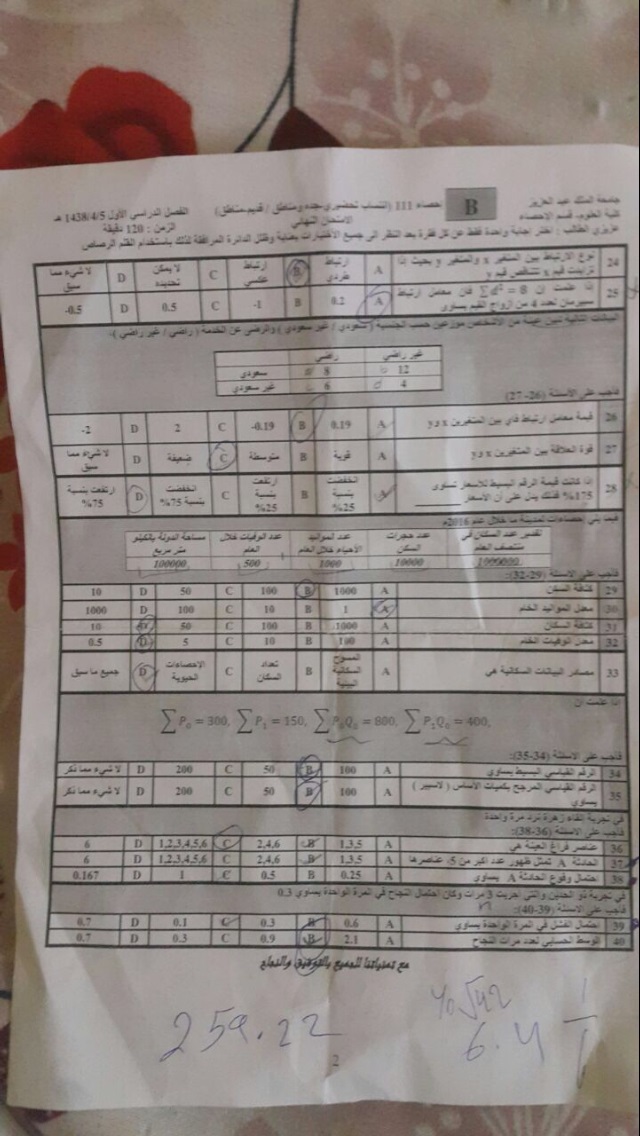 جامعة الملك عبد العزيز
B
احصاء 111 (انتساب تحضيري-جده ومناطق / قديم-مناطق)
الفصل الدراسي الأول 1438/4/5 هـ
كلية العلوم- قسم الاحصاء
الامتحان النهائي
الزمن: 120 دقيقة
عزيزي الطالب: اختر إجابة واحدة فقط عن كل فقرة بعد النظر الى جميع الاختيارات بعناية وظلل الدائرة المرافقة لذلك باستخدام القلم الرصاص
24 نوع الارتباط بين المتغير x والمتغير y بحيث إذا تزايدت قيم x تتناقص قيم y A ارتباط طردي B ارتباط عكسي C لا يمكن تحديده D لا شيء مما سبق
25 إذا علمت ان ∑d² = 8 فان معامل ارتباط سبيرمان لعدد 4 من أزواج القيم يساوي A 0.2 B -1 C 0.5 D -0.5
البيانات التالية تبين عينة من الأشخاص موزعين حسب الجنسية (سعودي / غير سعودي) والرضى عن الخدمة (راضي / غير راضي)-
غير راضي راضي
12 8 سعودي
4 6 غير سعودي
فأجب على الأسئلة (26-27)
26 قيمة معامل ارتباط فاي بين المتغيرين x وy A 0.19 B -0.19 C 2 D -2
27 قوة العلاقة بين المتغيرين x وy A قوية B متوسطة C ضعيفة D لا شيء مما سبق
28 إذا كانت قيمة الرقم البسيط للأسعار تساوي 175% فذلك يدل على أن الأسعار ______ A انخفضت بنسبة 25% B ارتفعت بنسبة 25% C انخفضت بنسبة 75% D ارتفعت بنسبة 75%
فيما يلي إحصاءات لمدينة ما خلال عام 2016م
تقدير عدد السكان في منتصف العام عدد هجرات السكن عدد المواليد الأحياء خلال العام عدد الوفيات خلال العام مساحة الدولة بالكيلو متر مربع
1000000 10000 1000 500 100000
فأجب على الاسئلة (29-32):
29 كثافة السكن A 1000 B 100 C 50 D 10
30 معدل المواليد الخام A 1 B 10 C 100 D 1000
31 كثافة السكان A 1000 B 100 C 50 D 10
32 معدل الوفيات الخام A 100 B 10 C 5 D 0.5
33 مصادر البيانات السكانية هي A المسوح السكانية البيئية B تعداد السكان C الإحصاءات الحيوية D جميع ما سبق
إذا علمت ان
∑P₀ = 300, ∑P₁ = 150, ∑P₀Q₀ = 800, ∑P₁Q₀ = 400,
فأجب على الاسئلة (34-35):
34 الرقم القياسي البسيط يساوي A 100 B 50 C 200 D لا شيء مما ذكر
35 الرقم القياسي المرجح بكميات الأساس (لاسبير) يساوي A 100 B 50 C 200 D لا شيء مما ذكر
في تجربة إلقاء زهرة نرد مرة واحدة
فأجب على الاسئلة (36-38):
36 عناصر فراغ العينة هي A 1,3,5 B 2,4,6 C 1,2,3,4,5,6 D 6
37 الحادثة A تمثل ظهور عدد أكبر من 5، عناصرها A 1,3,5 B 2,4,6 C 1,2,3,4,5,6 D 6
38 احتمال وقوع الحادثة A يساوي A 0.25 B 0.5 C 1 D 0.167
في تجربة ذو الحدين والتي أجريت 3 مرات وكان احتمال النجاح في المرة الواحدة يساوي 0.3
فأجب على الاسئلة (39-40):
39 احتمال الفشل في المرة الواحدة يساوي A 0.6 B 0.3 C 0.1 D 0.7
40 الوسط الحسابي لعدد مرات النجاح A 2.1 B 0.9 C 0.3 D 0.7
مع تمنياتنا للجميع بالتوفيق والنجاح
259.22
6.4
2